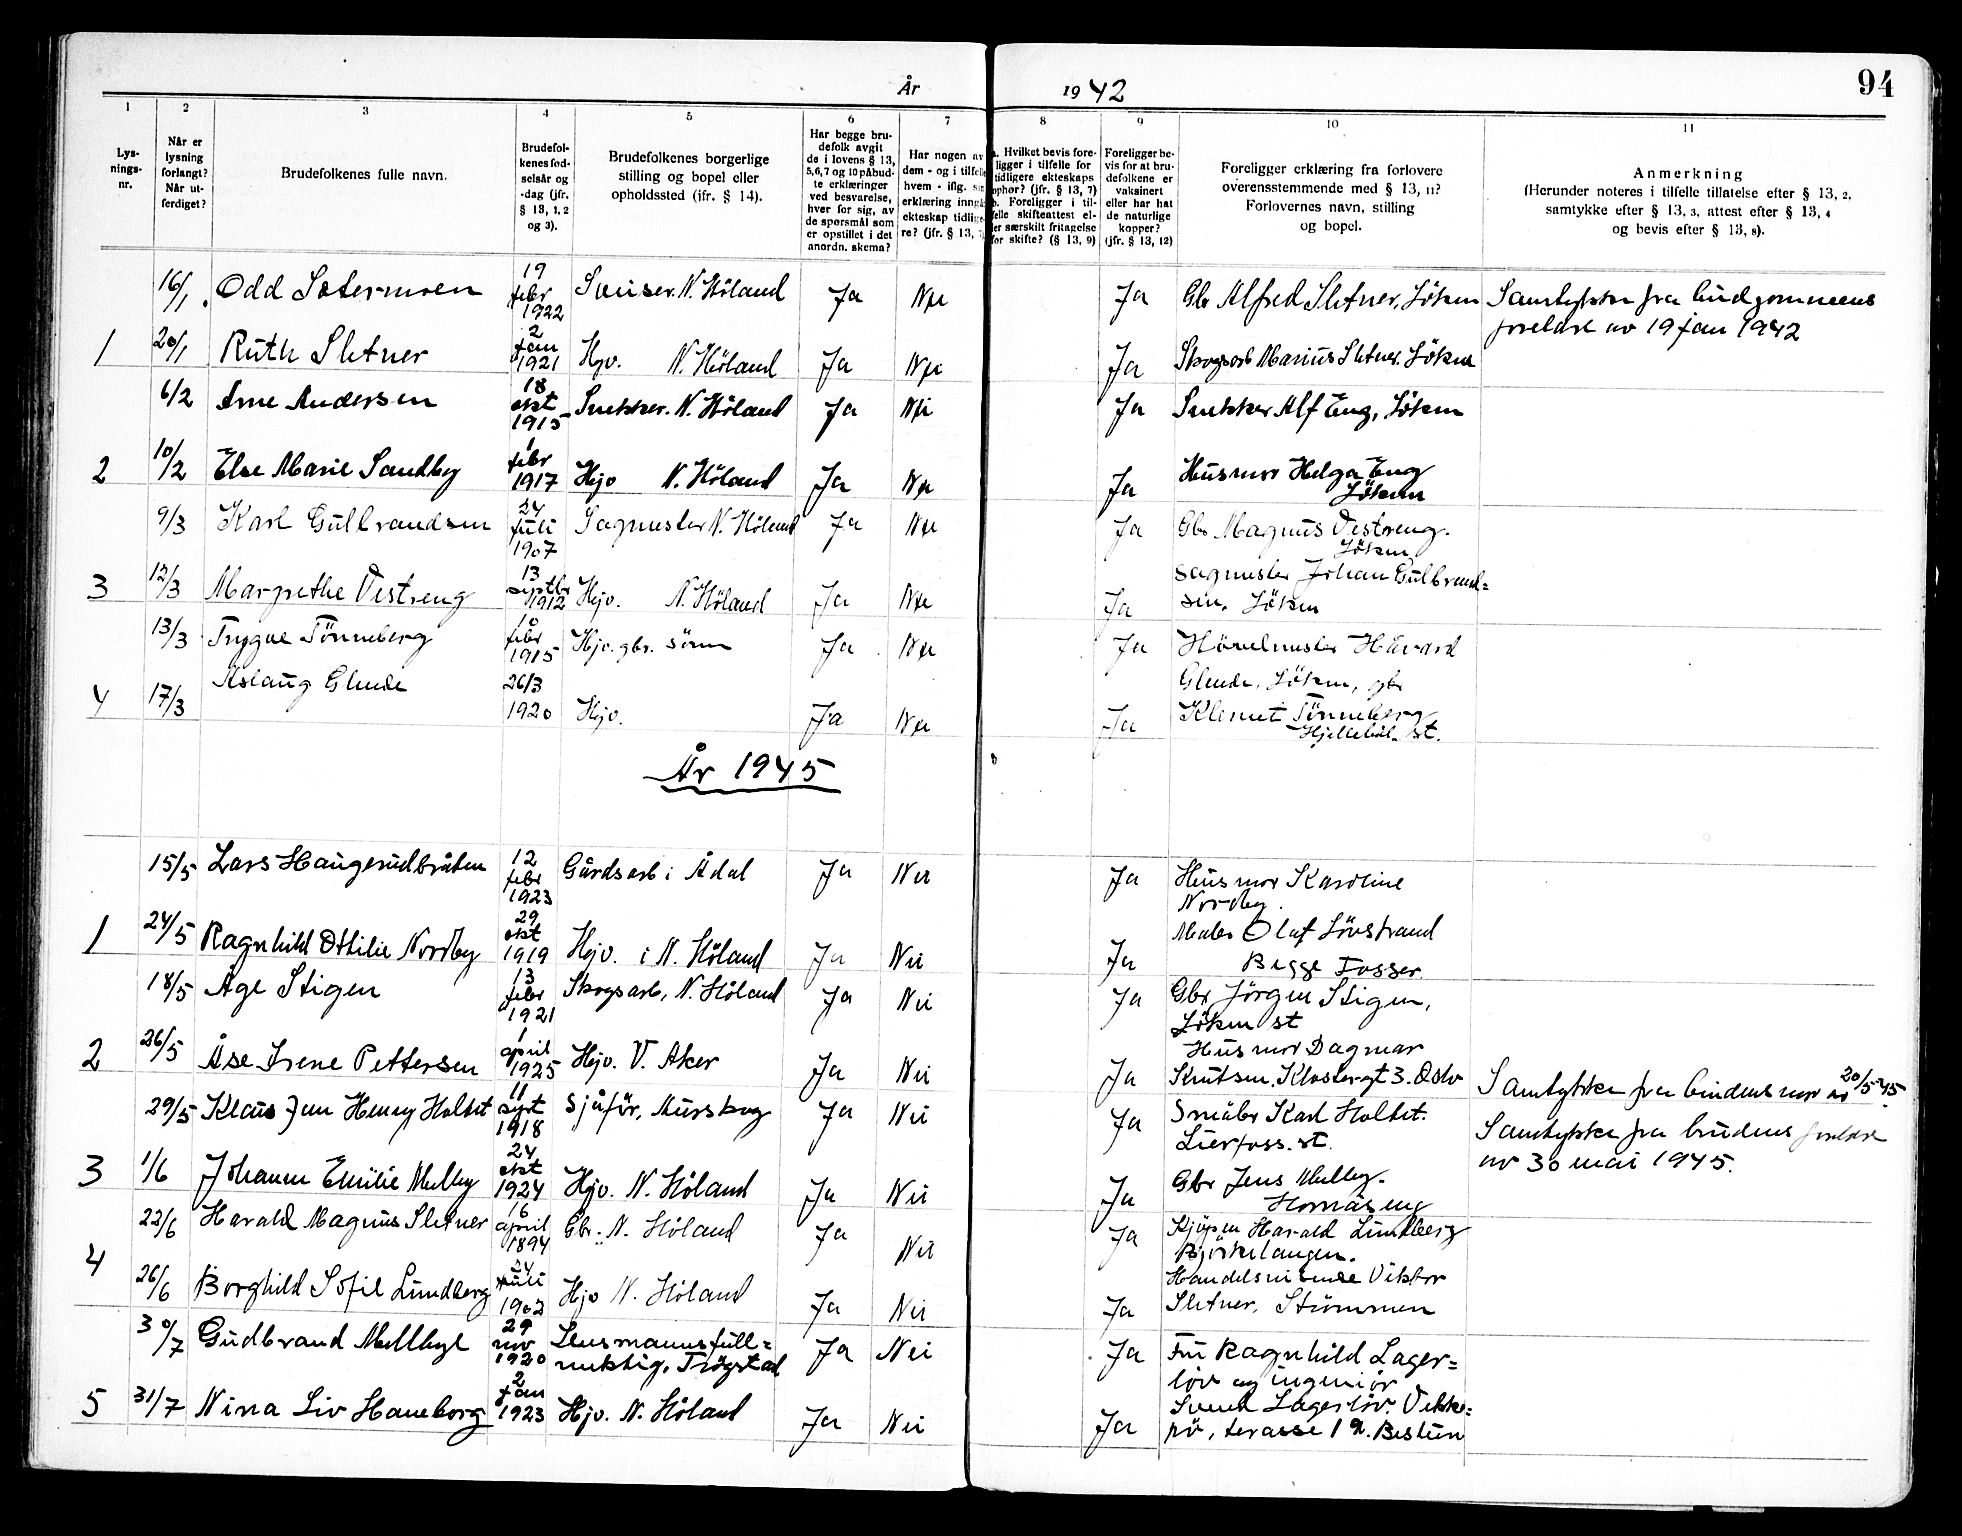 94
År 1942
1 2 3 4 5 6 7 8 9 10 11
Lys-
nings-
nr.
Når er
lysning
forlangt?
Når ut-
ferdiget?
Brudefolkenes fulle navn.
Brudefol-
kenes fød-
selsår og
-dag (jfr.
§ 13, 1, 2
og 3).
Brudefolkenes borgerlige
stilling og bopel eller
opholdssted (jfr. § 14).
Har begge bru-
defolk avgit
de i lovens § 13,
5, 6, 7 og 10 påbud-
te erklæringer
ved besvarelse,
hver for sig, av
de spørsmål som
er opstillet i det
anordn. skema?
Har nogen av
dem - og i tilfelle
hvem - iflg. sin
erklæring inngå
ekteskap tidlige-
re? (jfr. § 13, 7)
a. Hvilket bevis fore-
ligger i tilfelle for
tidligere ekteskaps
ophør? (jfr. § 13, 7)
b. Foreligger i til-
felle skifteattest el-
ler særskilt fritagelse
for skifte? (§ 13, 9)
Foreligger be-
vis for at bru-
defolkene er
vaksinert
eller har hat
de naturlige
kopper?
(jfr. § 13, 12)
Foreligger erklæring fra forlovere
overensstemmende med § 13, 11?
Forlovernes navn, stilling
og bopel.
Anmerkning
(Herunder noteres i tilfelle tillatelse efter § 13, 2,
samtykke efter § 13, 3, attest efter § 13, 4
og bevis efter § 13, 8).
16/1 Odd Sætermoen 19 febr 1922 N. Höland Ja Nei Ja Gbr Alfred Sletner, Löken Samtykke fra brudgommens
foreldre av 19 jan 1942
1 20/1 Ruth Sletner 2 jan 1921 Hjv. N. Höland Ja Nei Ja Skogsarb Marius Sletner, Löken
6/2 Arne Andersen 18 okt 1915 Snekker. N. Höland Ja Nei Ja Snekker Alf Eng, Löken
2 10/2 Else Marie Sandby 1 febr 1917 Hjv N. Höland Ja Nei Ja Husmor Helga Eng
Löken
9/3 Karl Gulbrandsen 24 juli 1907 Sagmester N. Höland Ja Nei Ja Gbr Magnus Vestreng.
Löken
3 12/3 Margrethe Vestreng 13 septbr 1912 Hjv. N. Höland Ja Nei Ja Sagmester Johan Gulbrand=
sen, Löken
13/3 Trygve Tönneberg 10 febr 1915 Hjv. gbr. sönn Ja Nei Ja Hövelmester Håvard
4 17/3 Aslaug Glende 26/3 1920 Hjv. Ja Nei Ja Glende, Löken, gbr
Klemet Tönneberg
Hjellebøl st.
År 1945
15/5 Lars Haugerudbråten 12 febr 1923 Gårdsarb i Ådal Ja Nei Ja Husmor Karoline
Nordby.
1 24/5 Ragnhild Othilie Nordby 29 okt 1919 Hjv. i N. Höland Ja Nei Ja Maler Olaf Lövstrand
Begge Fosser.
18/5 Åge Stigen 13 febr 1921 Skogsarb, N. Höland Ja Nei Ja Gbr Jörgen Stigen,
Löken st
2 26/5 Åse Irene Pettersen 1 april 1925 Hjv. V. Aker Ja Nei Ja Husmor Dagmar
Knutsen, Klostergt 3. Oslo Samtykke fra brudens mor av 20/5-45.
29/5 Klaus Jan Henry Holtet 11 sept 1918 Sjåför, Aurskog Ja Nei Ja Småbr Karl Holtet.
Lierfoss. st. Samtykke fra brudens foreldre
av 30 mai 1945.
3 1/6 Johanne Emilie Melby 24 okt 1924 Hjv. N. Höland Ja Nei Ja Gbr Jens Melby.
Hornåseng
22/6 Harald Magnus Sletner 16 april 1894 Gbr. N. Höland Ja Nei Ja Kjöpm Harald Lundberg
Björkelangen.
4 26/6 Borghild Sofie Lundberg 24 juli 1902 Hjv N. Höland Ja Nei Ja Handelsreisende Viktor
Sletner, Strömmen
30/7 Gudbrand Mellbye 29 nov 1920 Lensmannsfull=
mektig, Trögstad Ja Nei Ja Fru Ragnhild Lager=
löv og ingeniör
5 31/7 Nina Liv Haneborg 2 jan 1923 Hjv. N. Höland Ja Nei Ja Svend Lagerlöv. Vekke=
rö, terasse 19. Bestun